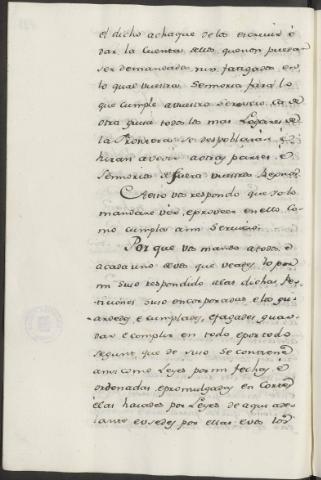 el dicho achaque de los escrivir é
dar la Cuenta dellos quenon puedan
ser demandados nin fatigados en
lo qual vuestra Senoria fará lo
que cumple avuestro servicio, ca de
otra guisa todos los mas Logares de
la Frontera se despoblarian, é
hiran avevir aotras partes, é
Senorios de fuera vuestros Regnos.
Aesto vos respondo que Yo lo
mandaré vér, eproveer en ello, co-
mo cumpla ami Servicio.
Por que vos mando atodos, é
acada uno dellos que veades, lo por
mi suso respondido alas dichas Pe-
ticiones suso encorporadas, e lo gu-
ardedes e cumplades, efagades guar-
dar e complir en todo epor todo
segunt que de suso se contiene
ansi como Leyes por mi fechas, é
ordenadas epromulgadas en Cortes
élas hayades por Leyes de aqui ade-
lante eusedes por ellas evos los